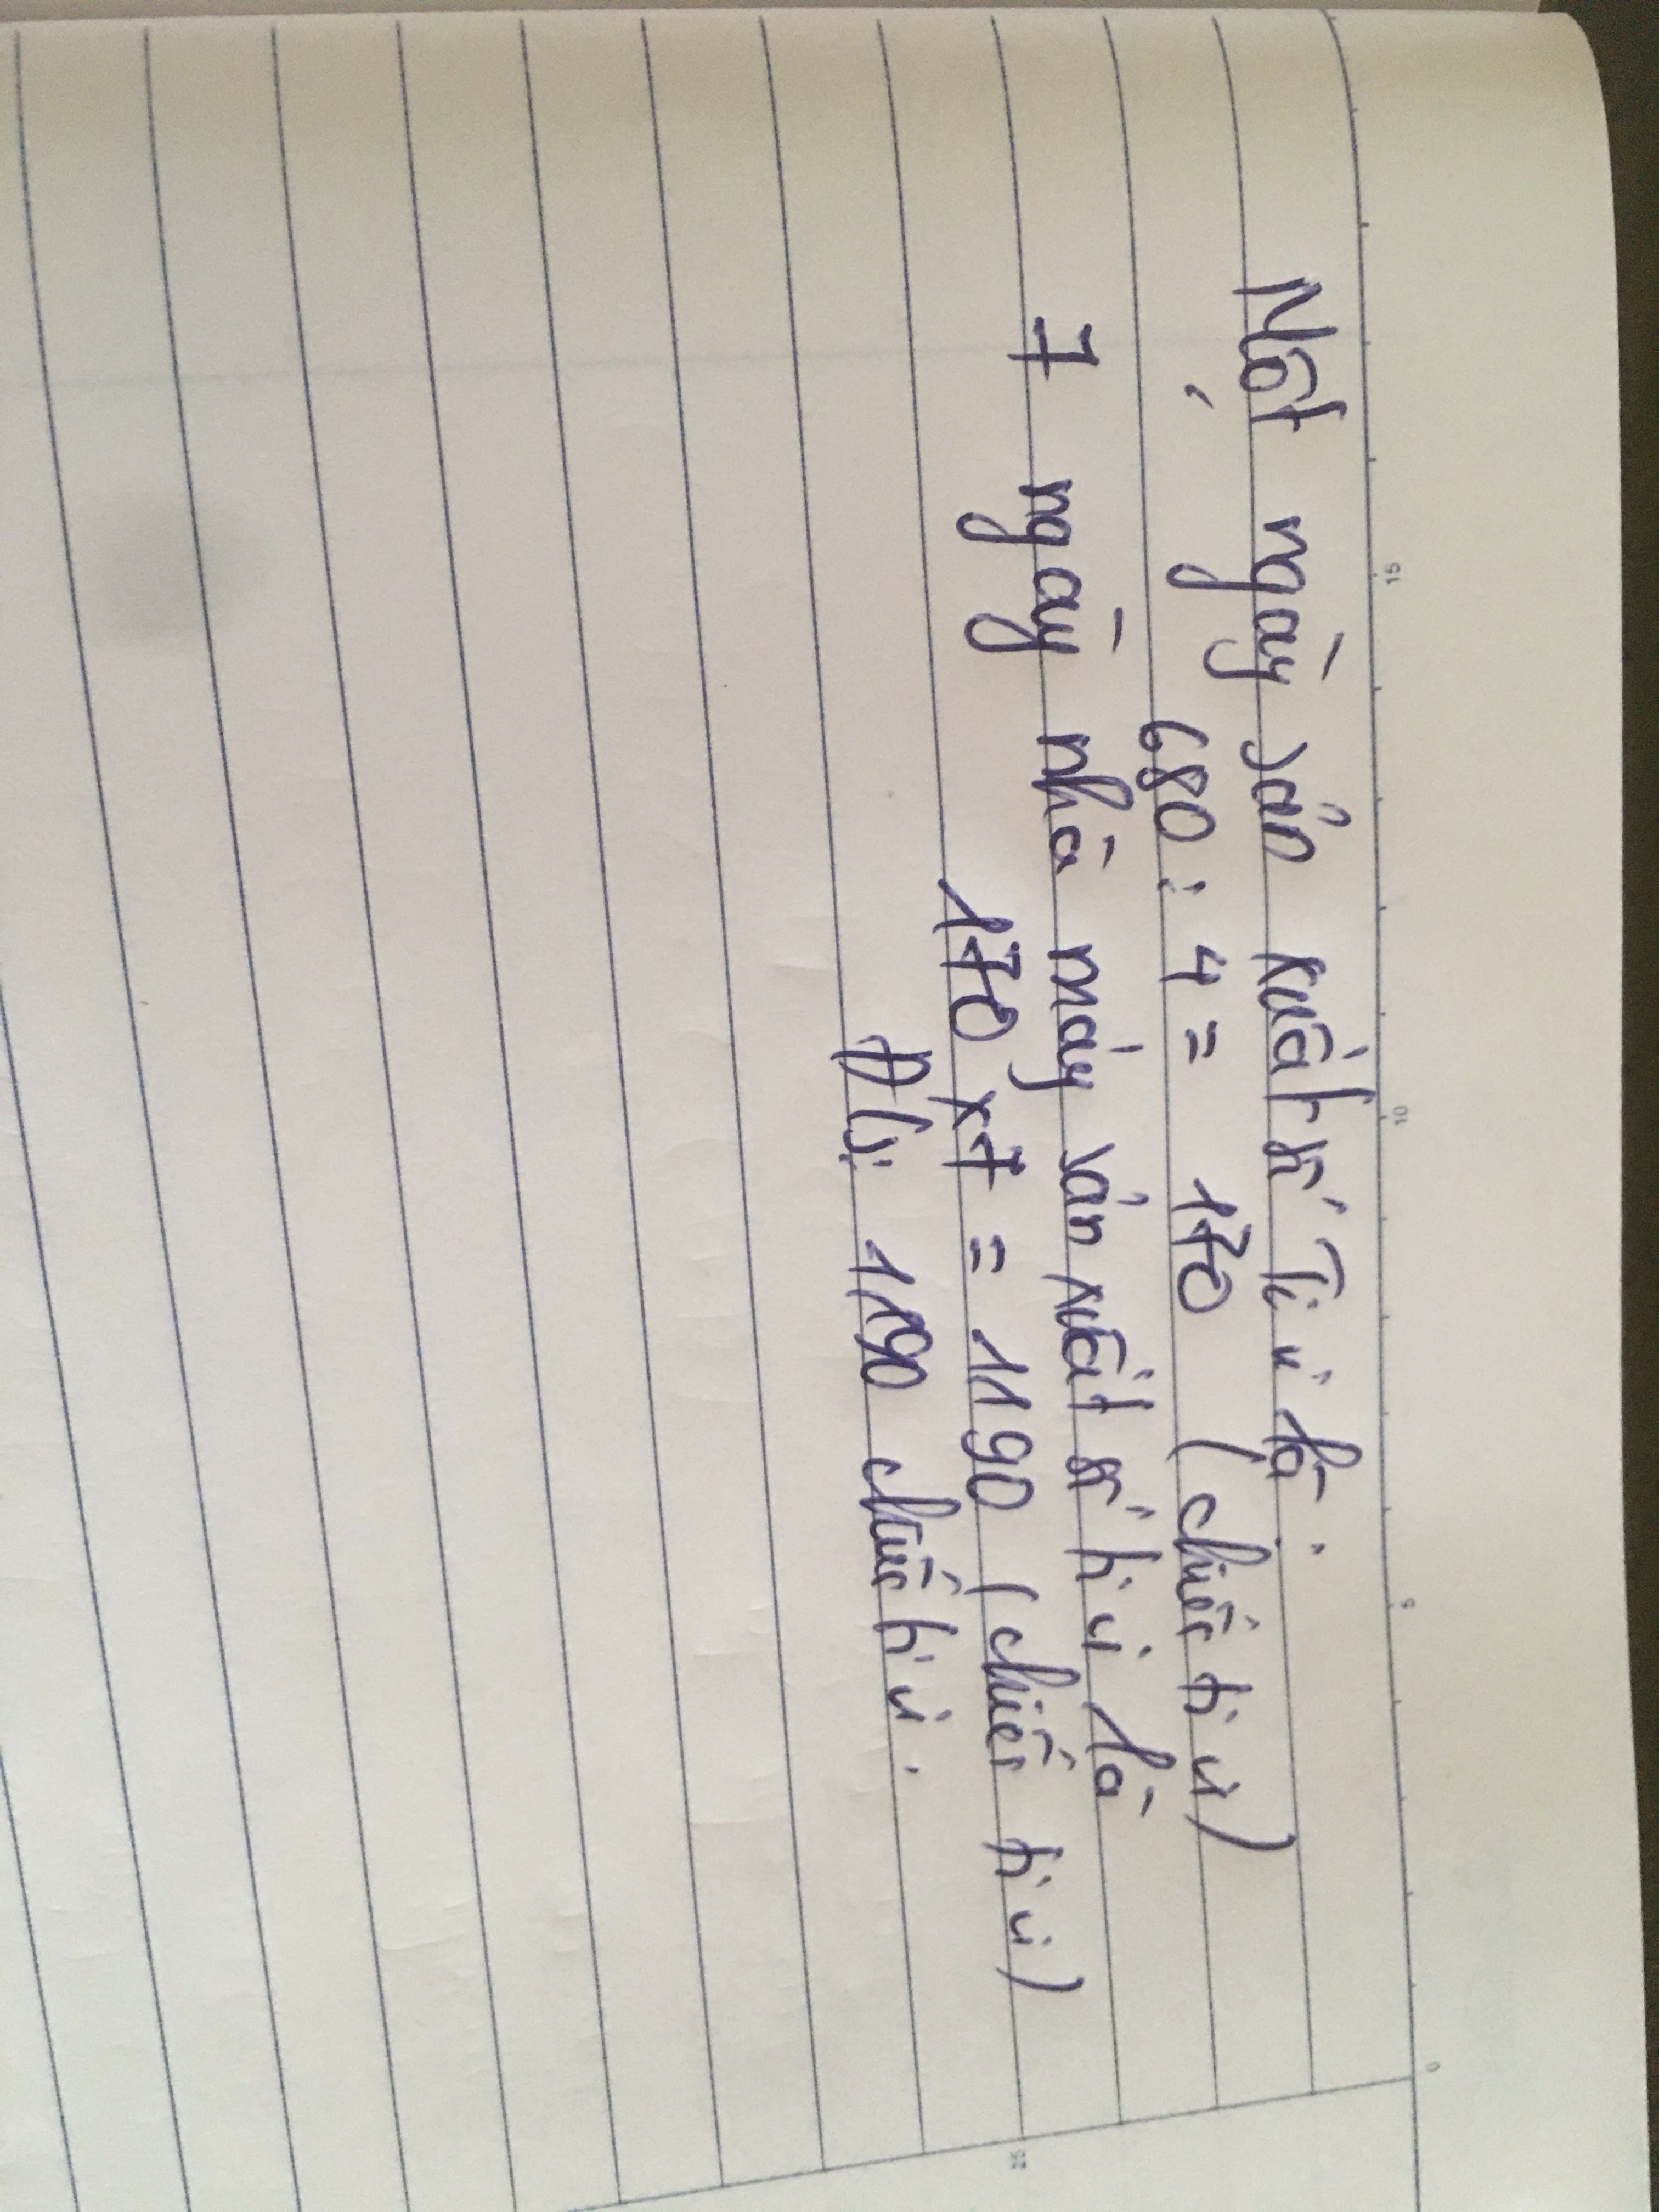 Một ngày sản xuất số Ti vi là:
680 : 4 = 170 (chiếc ti vi)
7 ngày nhà máy sản xuất số ti vi là
170 x 7 = 1190 (chiếc ti vi)
Đ/s: 1190 chiếc ti vi.
15
10
5
0
25